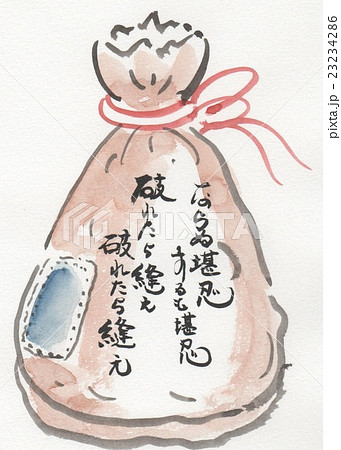 ならぬ堪忍
するも堪忍
破れたら縫え
破れたら縫え
PIXTA
23234286